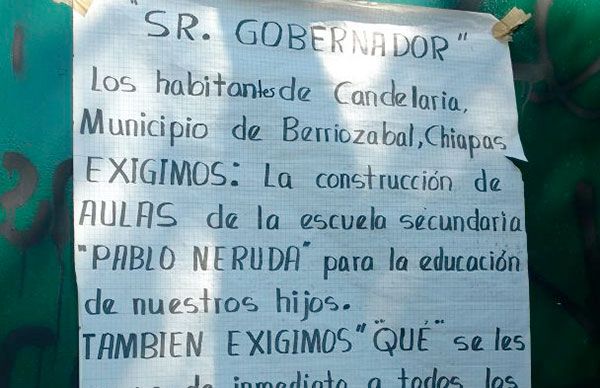 "SR. GOBERNADOR"
Los habitantes de Candelaria,
Municipio de Berriozabal, Chiapas
EXIGIMOS: La construcción de
AULAS de la escuela secundaria
"PABLO NERUDA" para la educación
de nuestros hijos.
TAMBIEN EXIGIMOS "QUÉ" se les
de inmediato a todos los